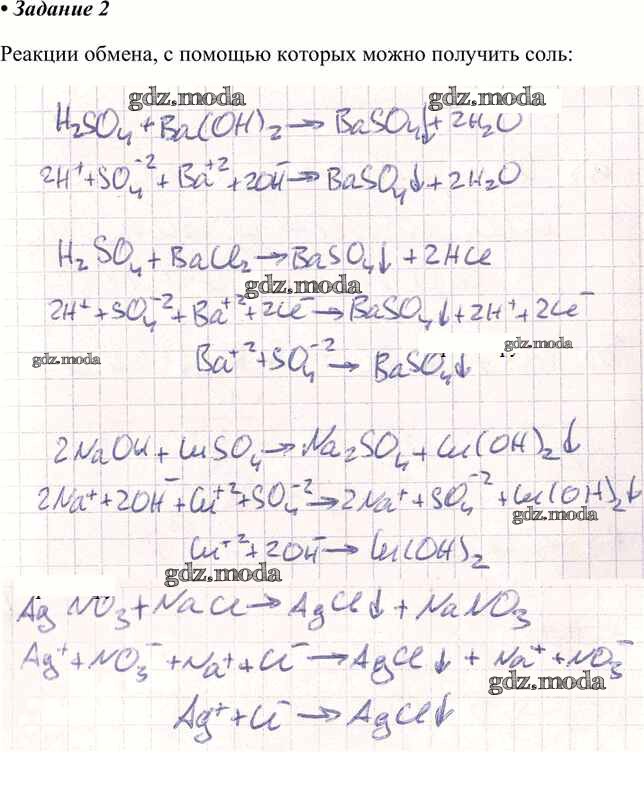 • Задание 2
Реакции обмена, с помощью которых можно получить соль:
gdz.moda gdz.moda
H₂SO₄ + Ba(OH)₂ → BaSO₄↓ + 2H₂O
2H⁺ + SO₄⁻² + Ba⁺² + 2OH⁻ → BaSO₄↓ + 2H₂O
H₂SO₄ + BaCl₂ → BaSO₄↓ + 2HCl
gdz.moda
2H⁺ + SO₄⁻² + Ba⁺² + 2Cl⁻ → BaSO₄↓ + 2H⁺ + 2Cl⁻
gdz.moda
gdz.moda
Ba⁺² + SO₄⁻² → BaSO₄↓
2NaOH + CuSO₄ → Na₂SO₄ + Cu(OH)₂↓
2Na⁺ + 2OH⁻ + Cu⁺² + SO₄⁻² → 2Na⁺ + SO₄⁻² + Cu(OH)₂↓
gdz.moda
Cu⁺² + 2OH⁻ → Cu(OH)₂
gdz.moda
AgNO₃ + NaCl → AgCl↓ + NaNO₃
Ag⁺ + NO₃⁻ + Na⁺ + Cl⁻ → AgCl↓ + Na⁺ + NO₃⁻
gdz.moda
Ag⁺ + Cl⁻ → AgCl↓